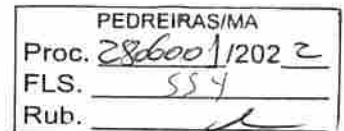 PEDREIRAS/MA
Proc. 2806001/2022
FLS. 554
Rub.